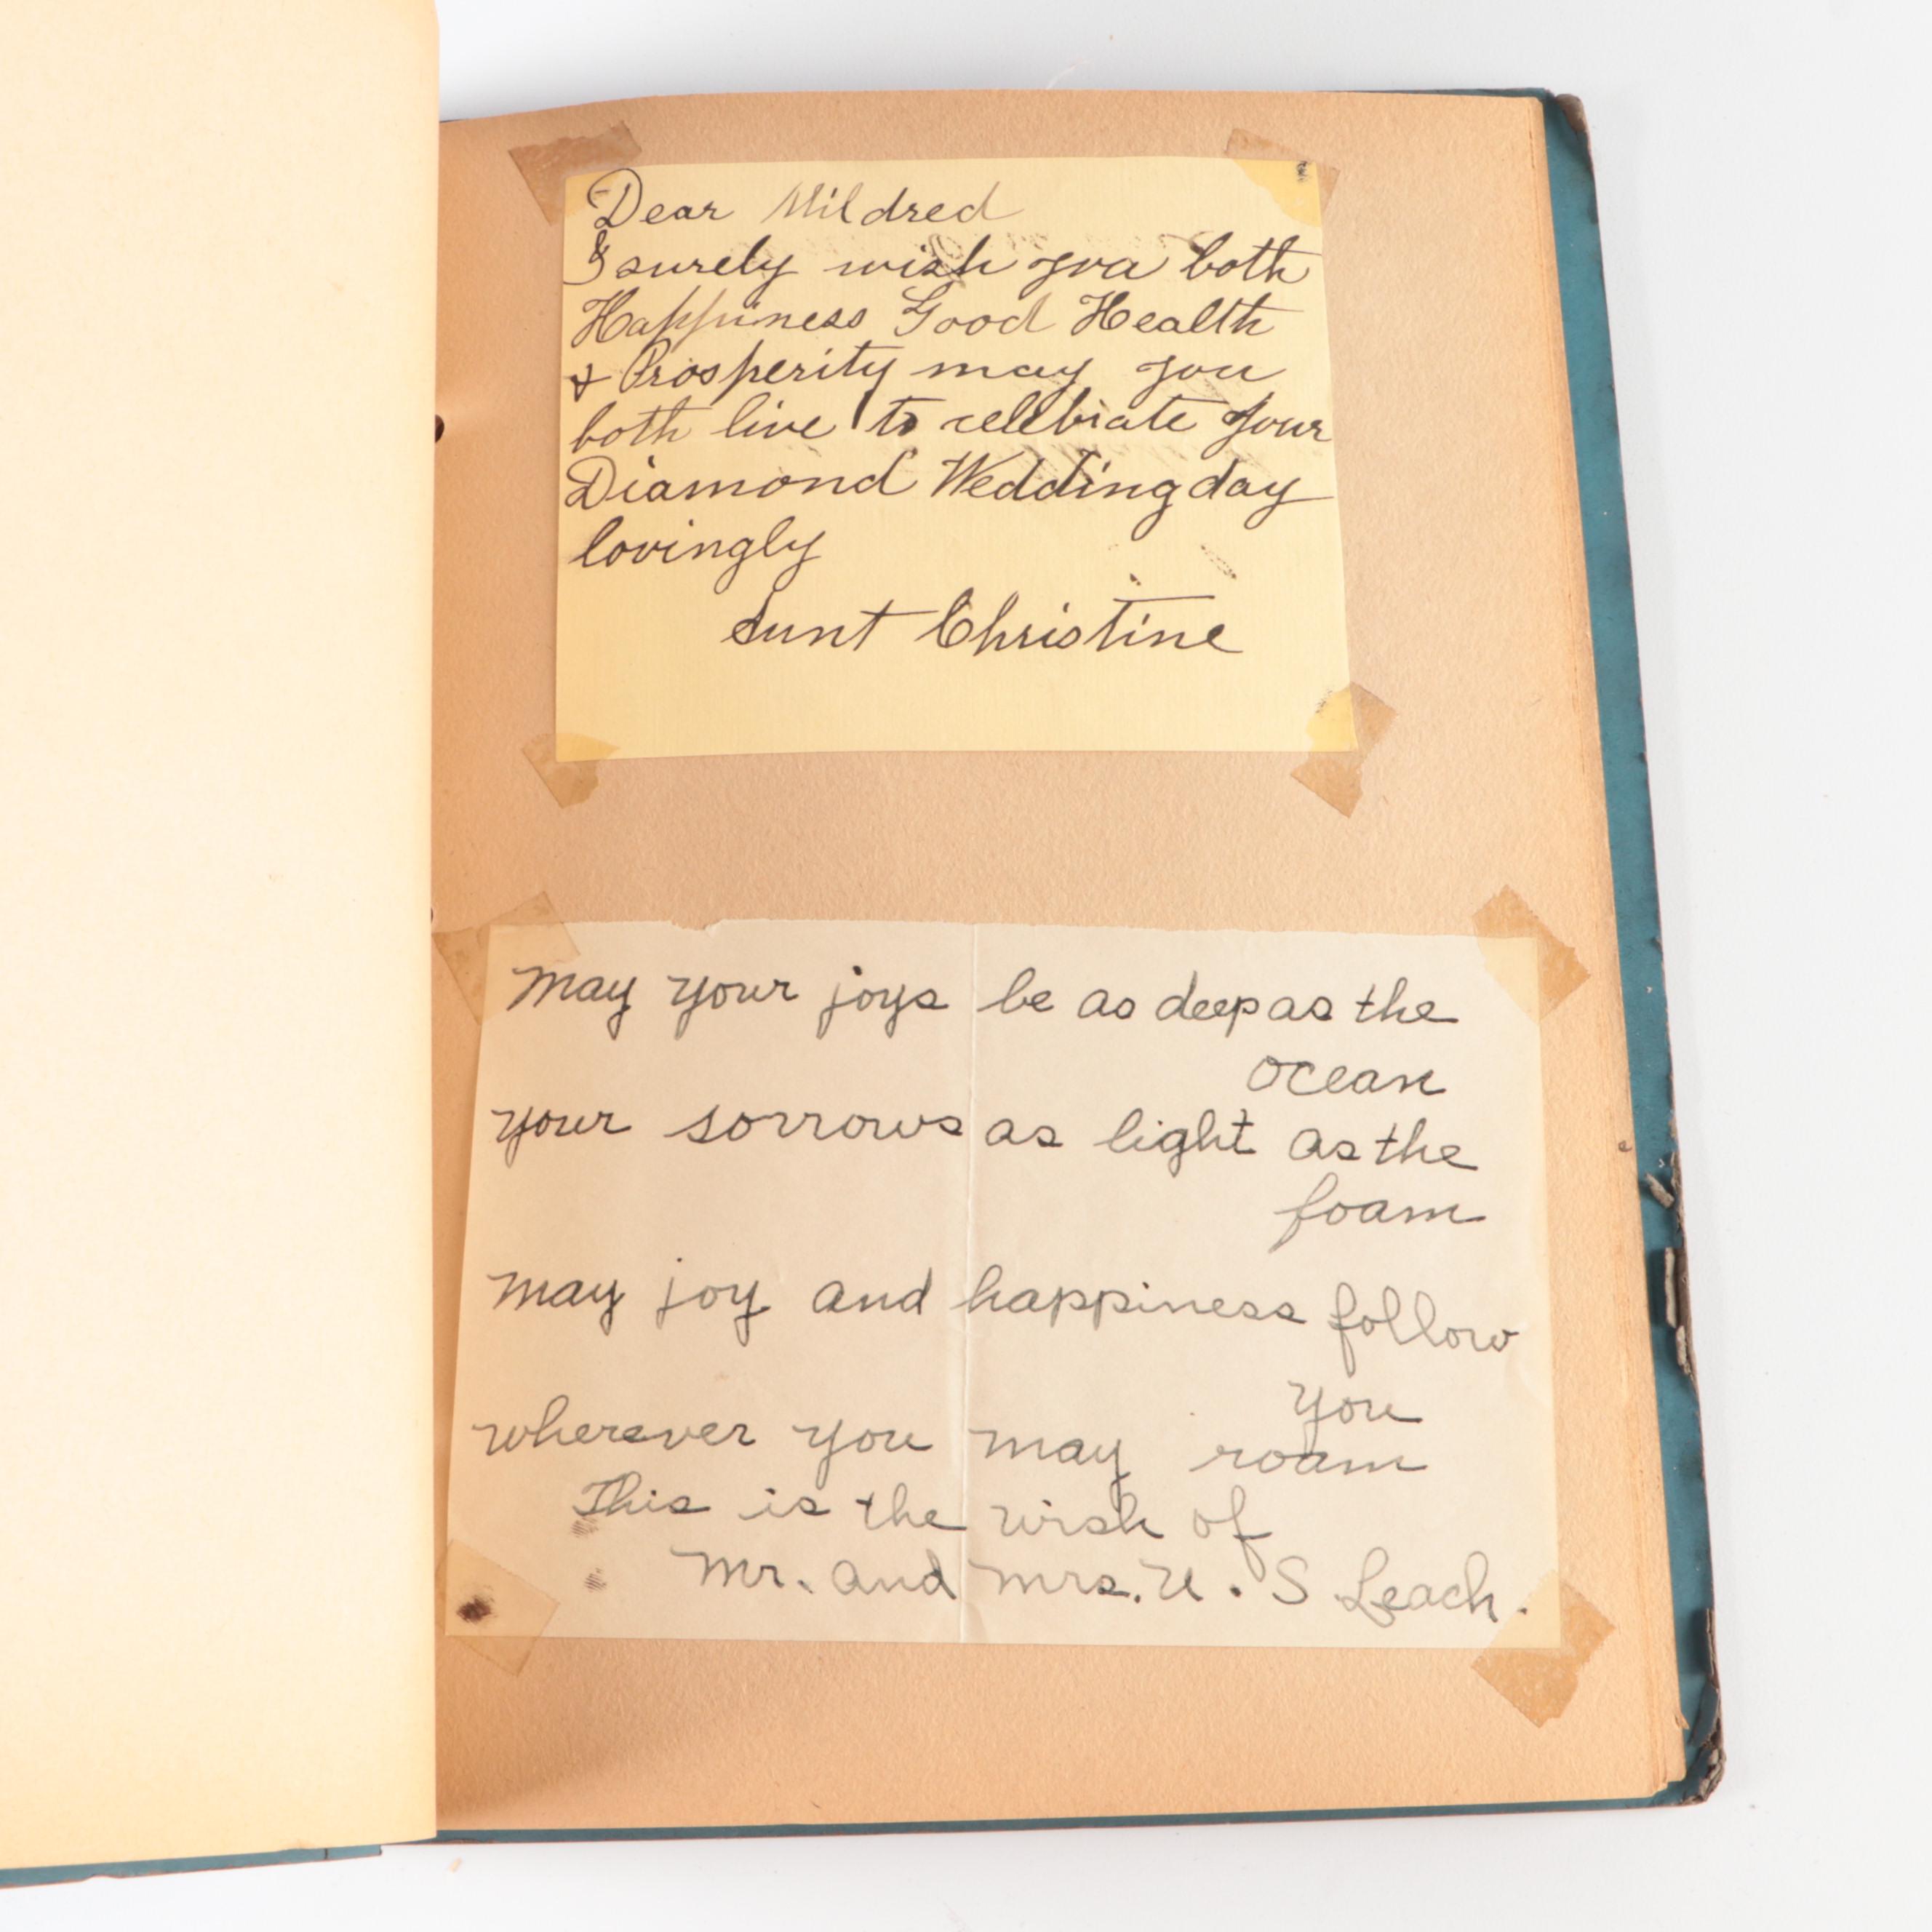 Dear Mildred
I surely wish you both
Happiness Good Health
& Prosperity may you
both live to celebrate your
Diamond Wedding day
lovingly
Aunt Christine
May your joys be as deep as the
ocean
your sorrows as light as the
foam
May joy and happiness follow
you
wherever you may roam
This is the wish of
Mr. and Mrs. U. S Leach.